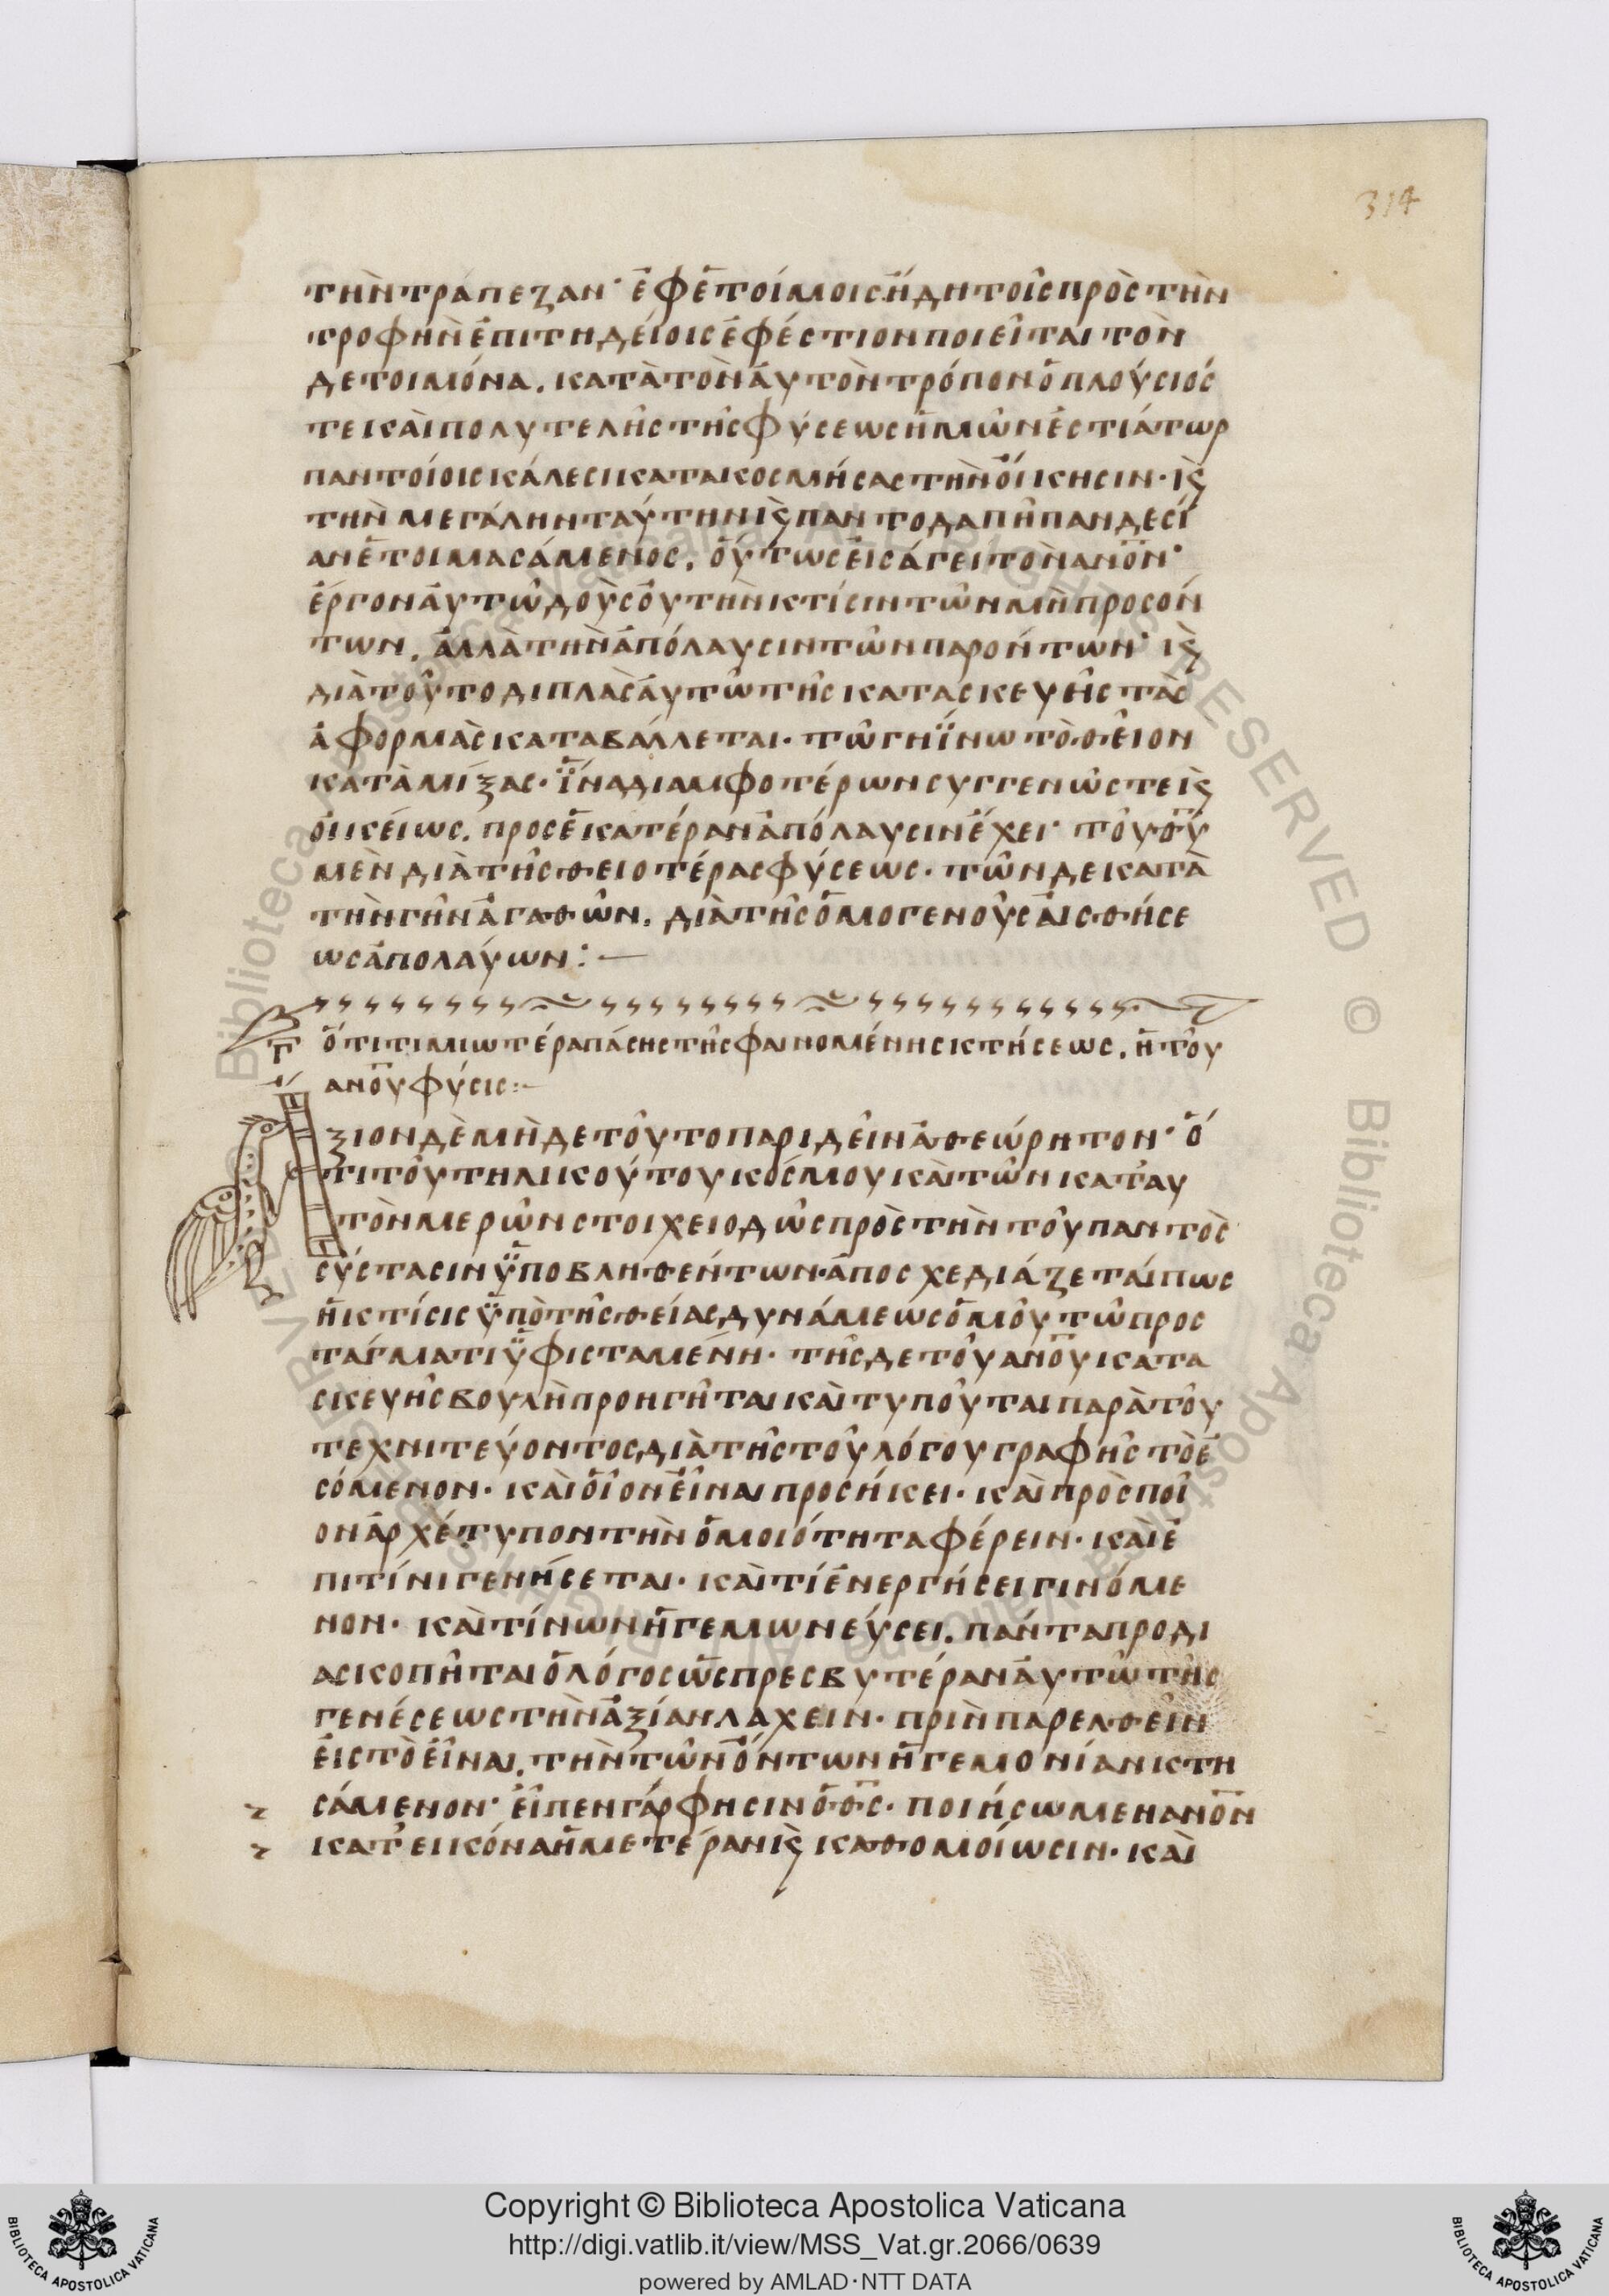 314
τὴν τράπεζαν· ἐφ ἑτοίμοις ἤδη τοῖς πρὸς τὴν
τροφὴν ἐπιτηδείοις ἐφέστιον ποιεῖται τὸν
δετοιμόνα. κατὰ τὸν αὐτὸν τρόπον ὁ πλούσιός
τε καὶ πολυτελὴς τῆς φύσεως ἡμῶν ἑστιάτωρ
παντοίοις κάλεσι κατακοσμήσας τὴν οἴκησιν· κ̀
τὴν μεγάλην ταύτην κ̀ παντοδαπῆ πανδεσί
αν ἑτοιμασάμενος. οὕτως εἰσάγει τὸν ανο̅ν·
ἔργον αὐτῶ δοὺς οὐ τὴν κτίσιν τῶν μὴ προσόν
των. ἀλλὰ τὴν ἀπόλαυσιν τῶν παρόντων· κ̀
διὰ τοῦτο διπλὰς αὐτῶ τῆς κατασκευῆς τὰς
ἀφορμὰς καταβάλλεται· τῶ γηΐνω τὸ θεῖον
καταμίξας· ἵνα δι αμφοτέρων συγγενῶς τε κ̀
οἰκείως. προς ἑκατέραν ἀπόλαυσιν ἔχει· τοῦ θ̅υ̅
μὲν διὰ τῆς θειοτέρας φύσεως· τῶν δε κατὰ
τὴν γῆν ἀγαθῶν. διὰ τῆς ὁμογενοῦς αἰσθήσε
ως ἀπολαύων:—
Γ ὅτι τιμιωτέρα πάσης τῆς φαινομένης κτήσεως. ἡ τοῦ
ανο̅υ φύσις:-
Ἄξιον δὲ μὴ δε τοῦτο παριδεῖν ἀθεώρητον· ὅ
τι τοῦ τηλικούτου κόσμου καὶ τῶν κατ αυ
τὸν μερῶν στοιχειοδῶς πρὸς τὴν τοῦ παντὸς
σύστασιν ὑποβληθέντων· ἀποσχεδιάζεταί πως
ἡ κτίσις ὑπὸ τῆς θείας δυνάμεως ὁμοῦ τῶ προς
τάγματι ὑφισταμένη· τῆς δε τοῦ ανο̅υ κατα
σκευῆς βουλὴ προηγῆται καὶ τυποῦται παρὰ τοῦ
τεχνιτεύοντος διὰ τῆς τοῦ λόγου γραφῆς τὸ ἐ
σόμενον· καὶ οἷον εἶναι προσήκει· καὶ πρὸς ποῖ
ον ἀρχέτυπον τὴν ὁμοιότητα φέρειν· καὶ ἐ
πι τίνι γενήσεται· καὶ τί ἐνεργήσει γινόμε
νον· καὶ τίνων ἡγεμωνεύσει. πάντα προδι
ασκοπῆται ὁ λόγος ὡς πρεσβυτέραν αὐτῶ τῆς
γενέσεως τὴν ἀξίαν λαχειν· πρὶν παρελθεῖν
εἰς τὸ εἶναι. τὴν τῶν ὄντων ἡγεμονίαν κτη
σάμενον· εἶπεν γάρ φησιν ὁ θ̅ς̅· ποιήσωμεν ανο̅ν
κατ εικόνα ἡμετέραν κ̀ καθ ομοίωσιν· καὶ
Copyright © Biblioteca Apostolica Vaticana
http://digi.vatlib.it/view/MSS_Vat.gr.2066/0639
powered by AMLAD·NTT DATA
BIBLIOTECA APOSTOLICA VATICANA
BIBLIOTECA APOSTOLICA VATICANA